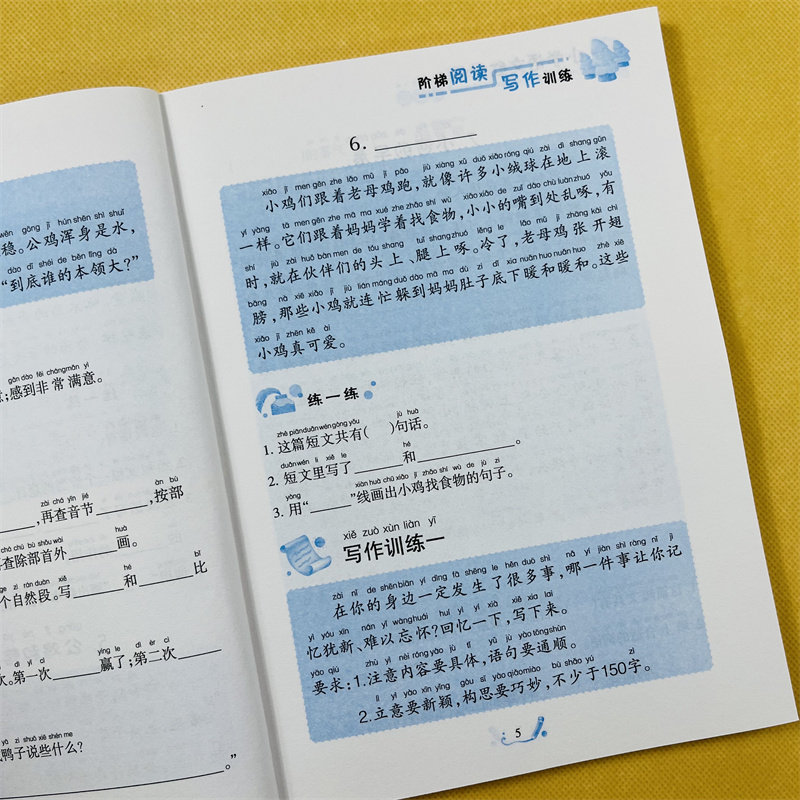 wěn gōng jī hún shēn shì shuǐ
稳。公鸡浑身是水,
dào dǐ shéi de běn lǐng dà
“到底谁的本领大?”
gǎn dào fēi cháng mǎn yì
;感到非常满意。
zài chá yīn jié àn bù
,再查音节______,按部
chá chú bù shǒu wài huà
再查除部首外______画。
gè zì rán duàn xiě hé bǐ
个自然段。写______和______比
dì yī cì yíng le dì èr cì
次。第一次______赢了;第二次______
yā zi shuō xiē shén me
鸭子说些什么?
。”
阶梯阅读 写作训练
6. __________
xiǎo jī men gēn zhe lǎo mǔ jī pǎo jiù xiàng xǔ duō xiǎo róng qiú zài dì shang gǔn
小鸡们跟着老母鸡跑,就像许多小绒球在地上滚
yí yàng tā men gēn zhe mā ma xué zhe zhǎo shí wù xiǎo xiǎo de zuǐ dào chù luàn zhuó yǒu
一样。它们跟着妈妈学着找食物,小小的嘴到处乱啄,有
shí jiù zài huǒ bàn men de tóu shang tuǐ shang zhuó lěng le lǎo mǔ jī zhāng kāi chì
时,就在伙伴们的头上、腿上啄。冷了,老母鸡张开翅
bǎng nà xiē xiǎo jī jiù lián máng duǒ dào mā ma dù zi dǐ xia nuǎn huo nuǎn huo zhè xiē
膀,那些小鸡就连忙躲到妈妈肚子底下暖和暖和。这些
xiǎo jī zhēn kě ài
小鸡真可爱。
练一练
zhè piān duǎn wén gòng yǒu jù huà
1. 这篇短文共有( )句话。
duǎn wén li xiě le hé
2. 短文里写了______和__________。
yòng xiàn huà chū xiǎo jī zhǎo shí wù de jù zi
3. 用“______”线画出小鸡找食物的句子。
xiě zuò xùn liàn yī
写作训练一
zài nǐ de shēn biān yí dìng fā shēng le hěn duō shì nǎ yí jiàn shì ràng nǐ jì
在你的身边一定发生了很多事,哪一件事让你记
yì yóu xīn nán yǐ wàng huái huí yì yí xià xiě xià lai
忆犹新、难以忘怀?回忆一下,写下来。
yāo qiú zhù yì nèi róng yào jù tǐ yǔ jù yào tōng shùn
要求:1.注意内容要具体,语句要通顺。
lì yì yào xīn yǐng gòu sī yào qiǎo miào bù shǎo yú zì
2.立意要新颖,构思要巧妙,不少于150字。
5